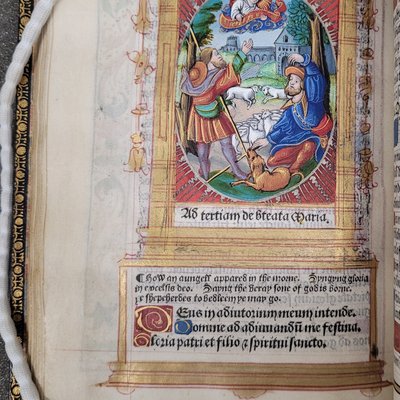 Ad tertiam de beata Maria.
¶ How an aungell appared in the morne. Syngyng gloria
in excelsis deo. Sayng the veray sone of god is borne.
ye shepeherdes to bedleem ye may go.
DEus in adiutorium meum intende.
Domine ad adiuuandū me festina.
Gloria patri et filio & spiritui sancto.